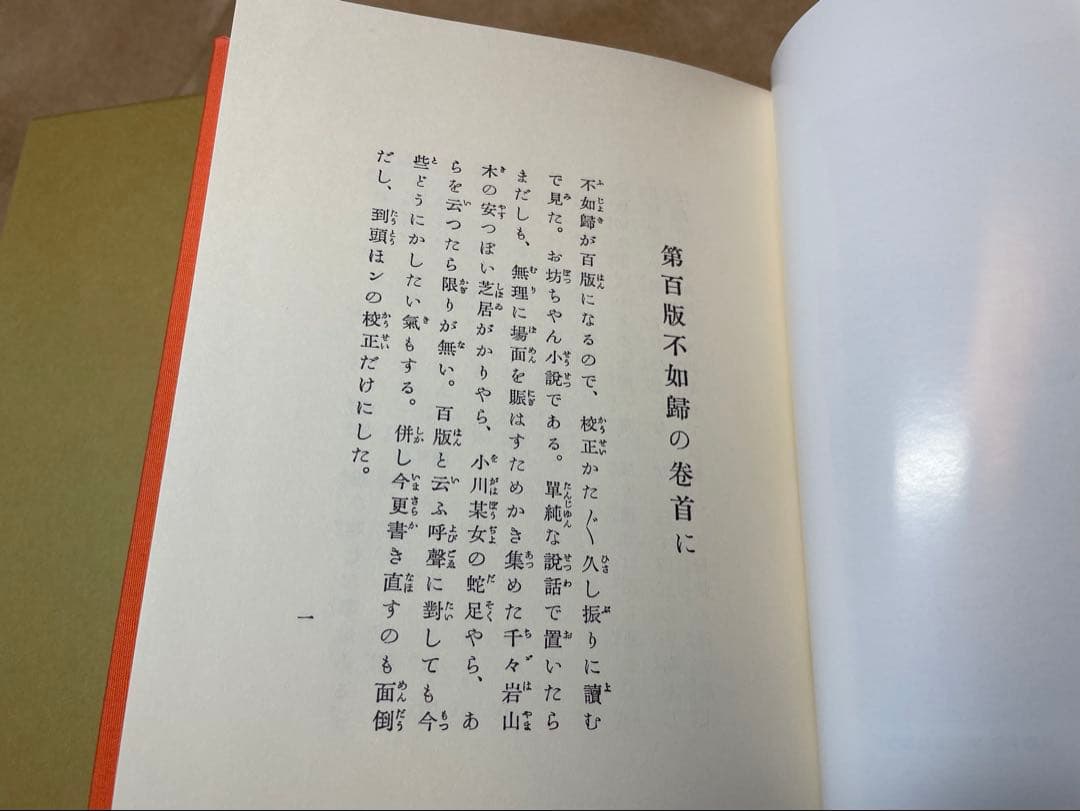 第百版不如歸の卷首に
不如歸が百版になるので、校正かた〴〵久し振りに讀む
で見た。お坊ちやん小說である。單純な說話で置いたら
まだしも、無理に場面を賑はすためかき集めた千々岩山
木の安つぽい芝居がかりやら、小川某女の蛇足やら、あ
らを云つたら限りが無い。百版と云ふ呼聲に對しても今
些どうにかしたい氣もする。併し今更書き直すのも面倒
だし、到頭ほンの校正だけにした。
一